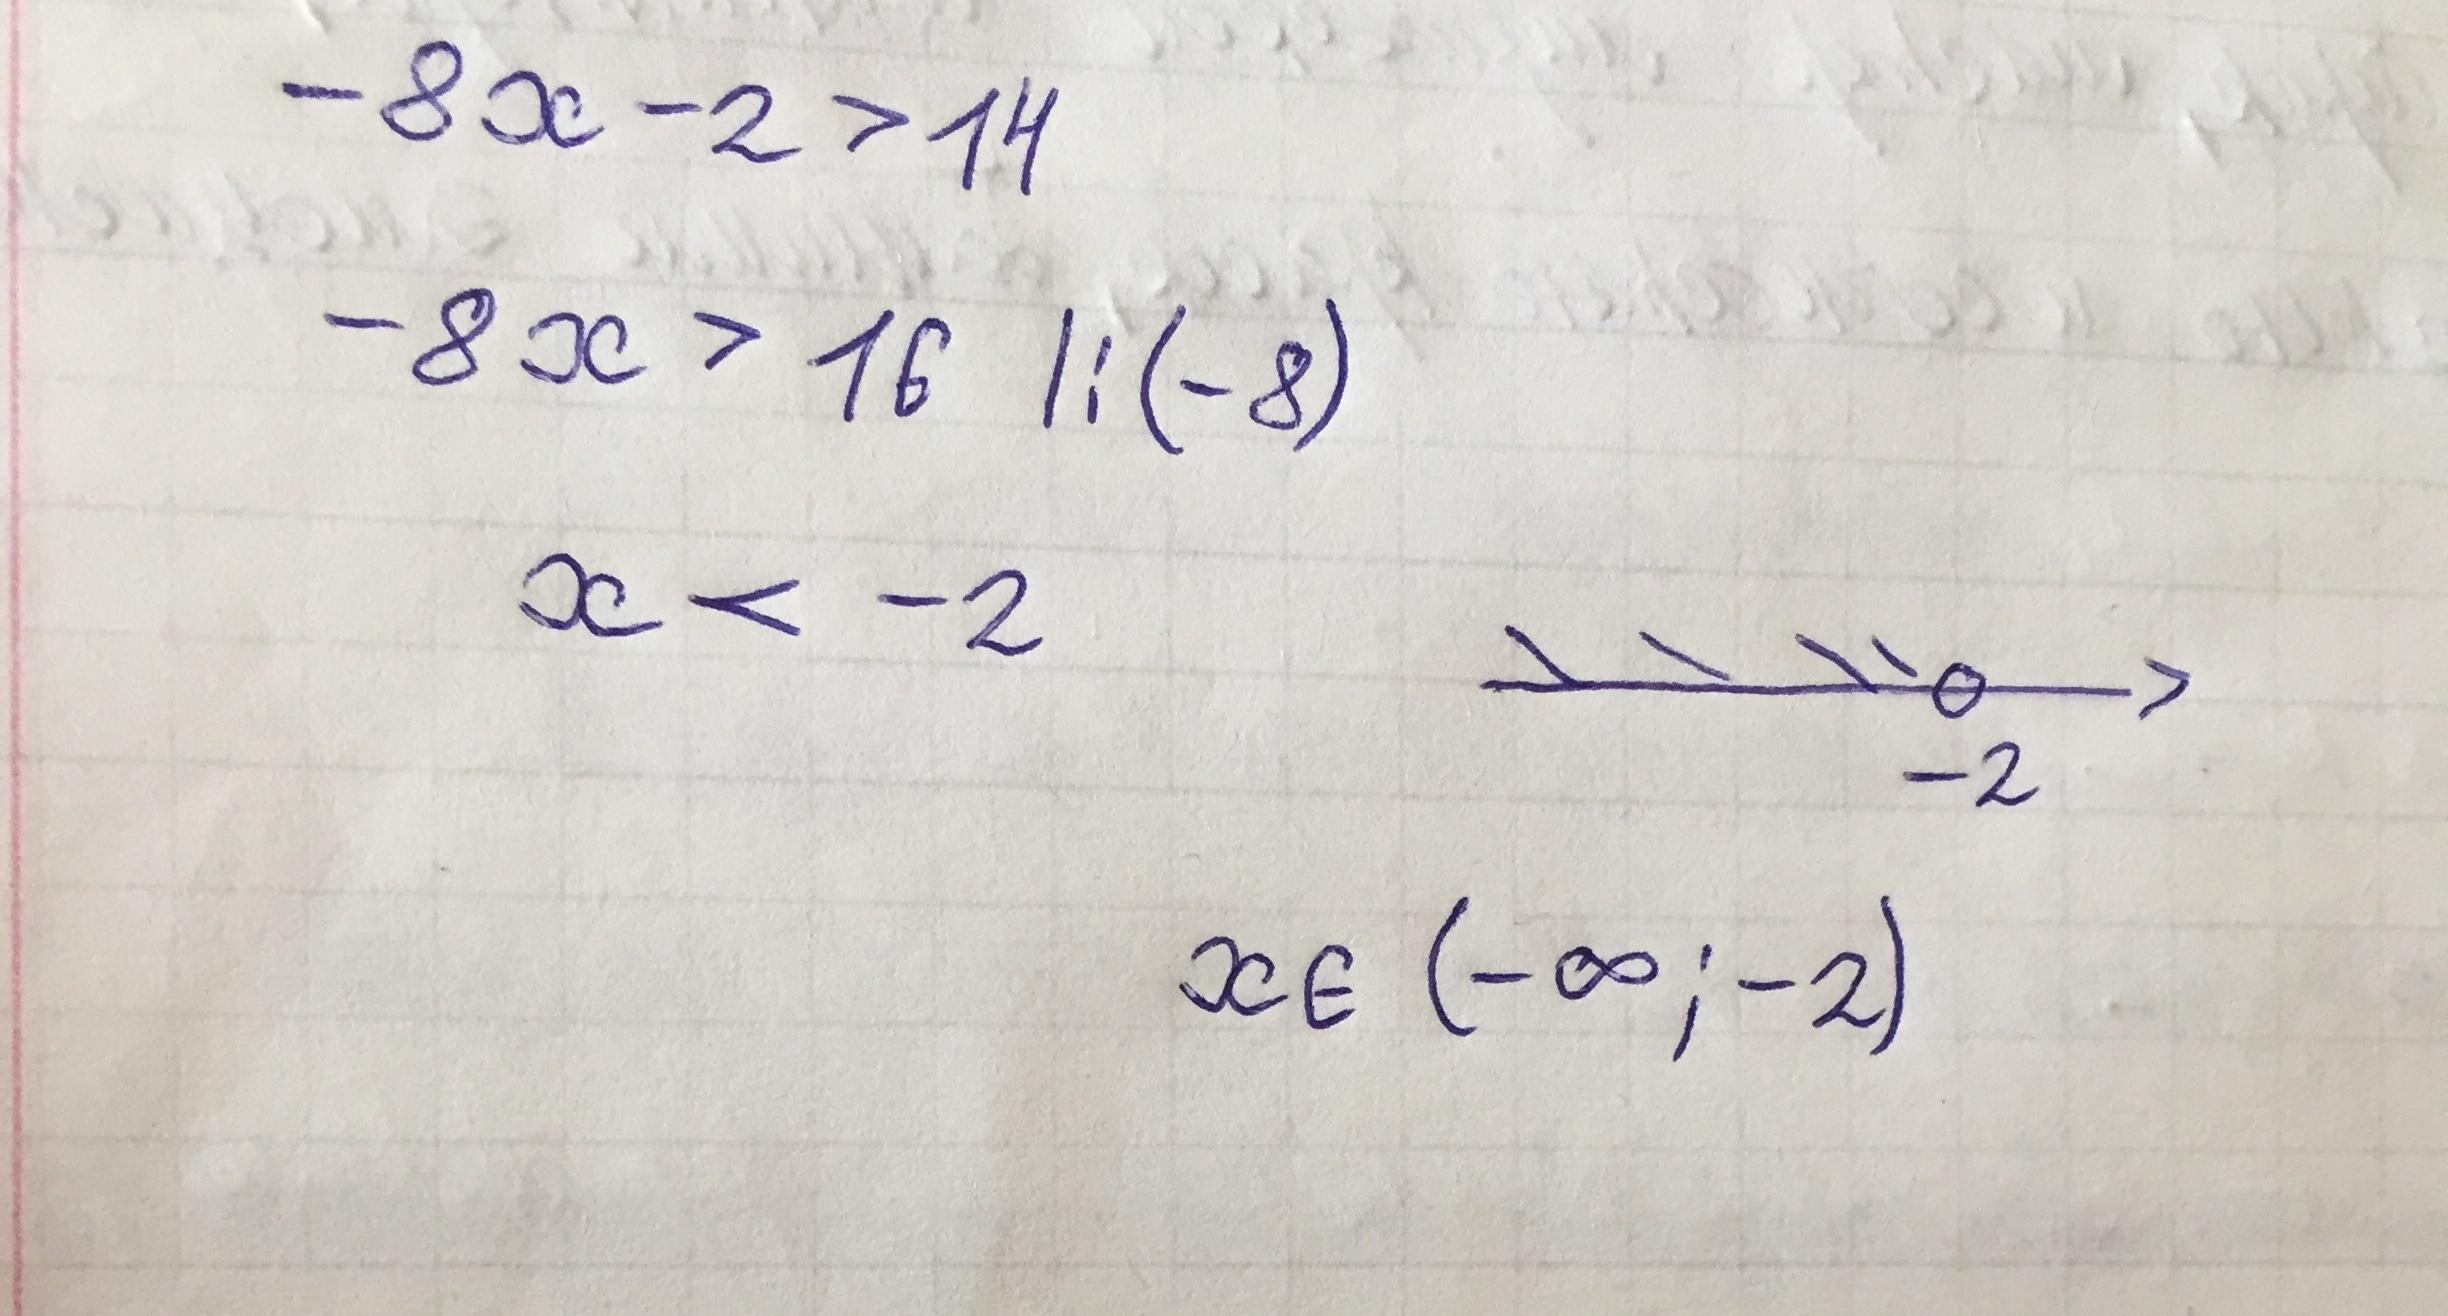 -8x-2>14
-8x > 16 |:(-8)
x < -2
-2
x∈ (-∞;-2)